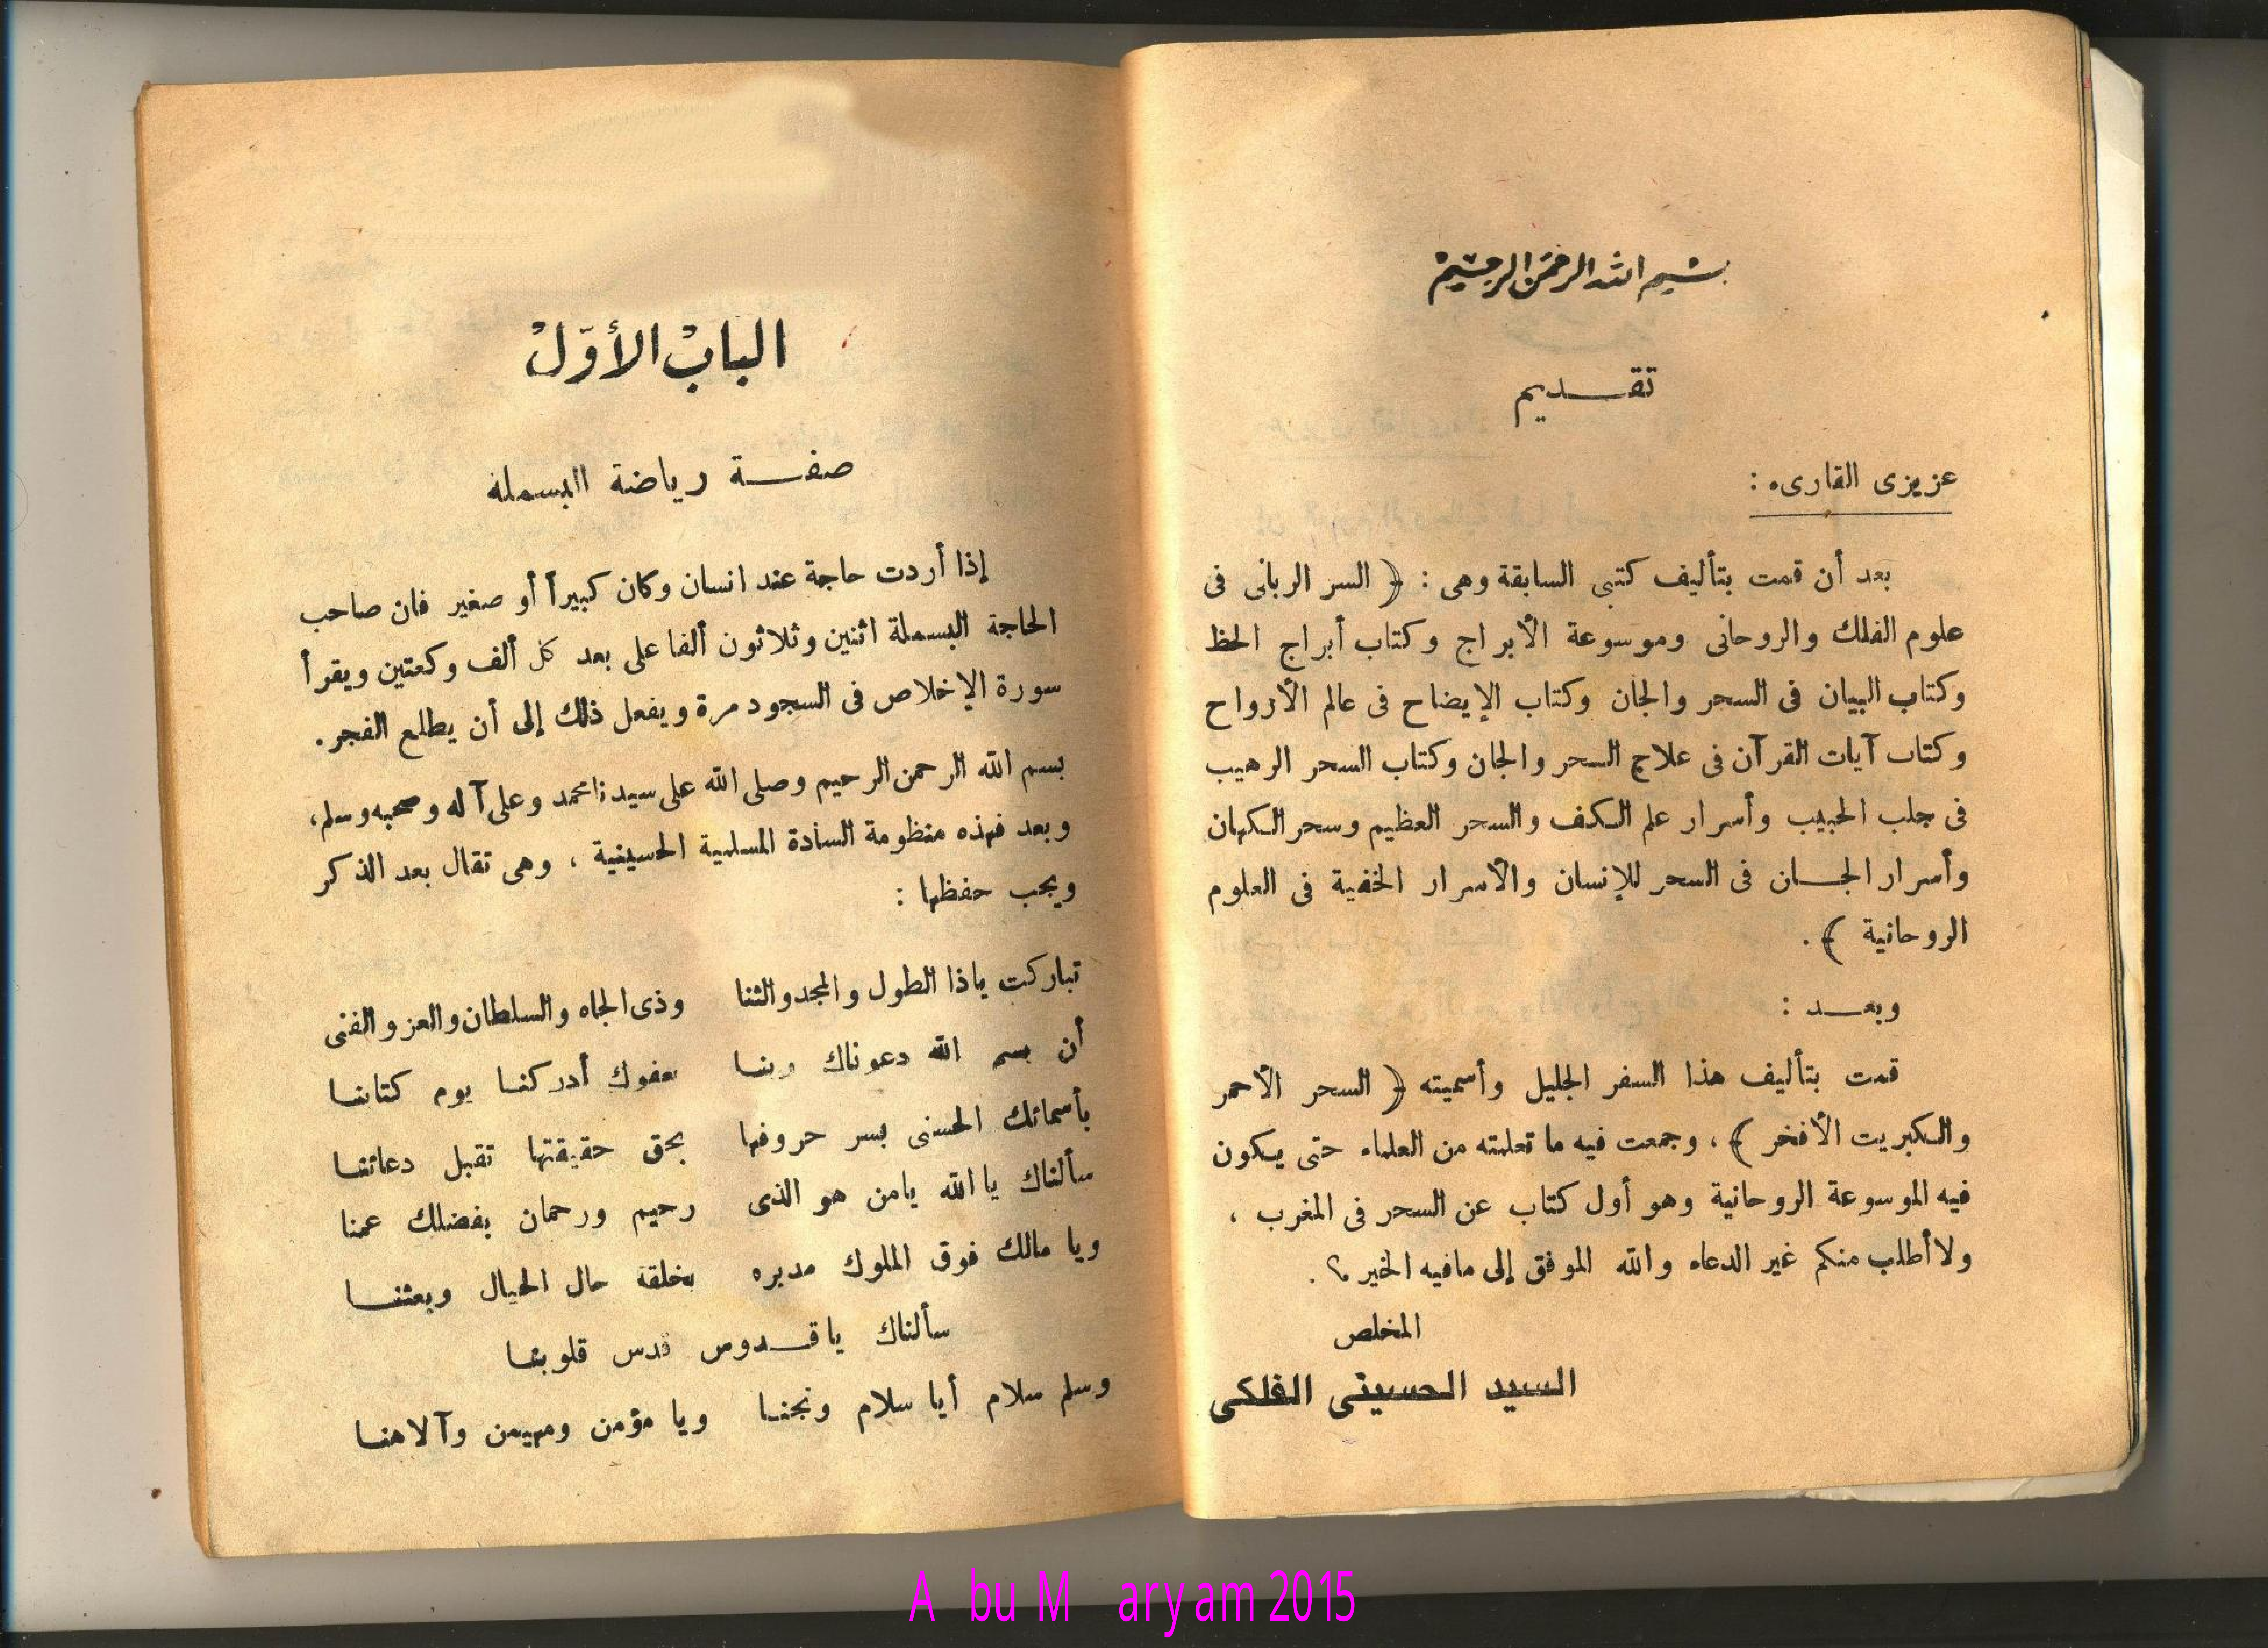 بسم الله الرحمن الرحيم
تقـــديم
عزيزى القارىء :
بعد أن قمت بتأليف كتبى السابقة وهى : ( السر الربانى فى
علوم الفلك والروحانى وموسوعة الأبراج وكتاب أبراج الحظ
وكتاب البيان فى السحر والجان وكتاب الإيضاح فى عالم الأرواح
وكتاب آيات القرآن فى علاج السحر والجان وكتاب السحر الرهيب
فى جلب الحبيب وأسرار علم الكف والسحر العظيم وسحر الكهان
وأسرار الجـــان فى السحر للإنسان والأسرار الخفية فى العلوم
الروحانية ) .
وبعـــد :
قمت بتأليف هذا السفر الجليل وأسميته ( السحر الأحمر
والكبريت الأفخر ) ، وجمعت فيه ما تعلمته من العلماء حتى يكون
فيه الموسوعة الروحانية وهو أول كتاب عن السحر فى المغرب ،
ولا أطلب منكم غير الدعاء والله الموفق إلى مافيه الخير ؟ .
المخلص
السيد الحسينى الفلكى
الباب الأول
صفـــة رياضة البسملة
إذا أردت حاجة عند انسان وكان كبيراً أو صغير فان صاحب
الحاجة البسملة اثنين وثلاثون ألفا على بعد كل ألف وكعتين ويقرأ
سورة الإخلاص فى السجود مرة ويفعل ذلك إلى أن يطلع الفجر .
بسم الله الرحمن الرحيم وصلى الله على سيدنا محمد وعلى آله وصحبه وسلم ،
وبعد فهذه منظومة السادة المسلمية الحسينية ، وهى تقال بعد الذكر
ويجب حفظها :
تباركت ياذا الطول والمجد والثنا وذى الجاه والسلطان والعز والغنى
أن بسم الله دعوناك ربنـا بعفوك أدركنـا يوم كتابنـا
بأسمائك الحسنى بسر حروفها بحق حقيقتها تقبل دعائنـا
سألناك يا الله يامن هو الذى رحيم ورحمان بفضلك عمنا
ويا مالك فوق الملوك مدبره بخلقة حال الحيال وبعثنـــا
سألناك ياقـــدوس قدس قلوبنـا
وسلم سلام أيا سلام ونجنـا ويا مؤمن ومهيمن وآلاهنـا
A bu M aryam 2015